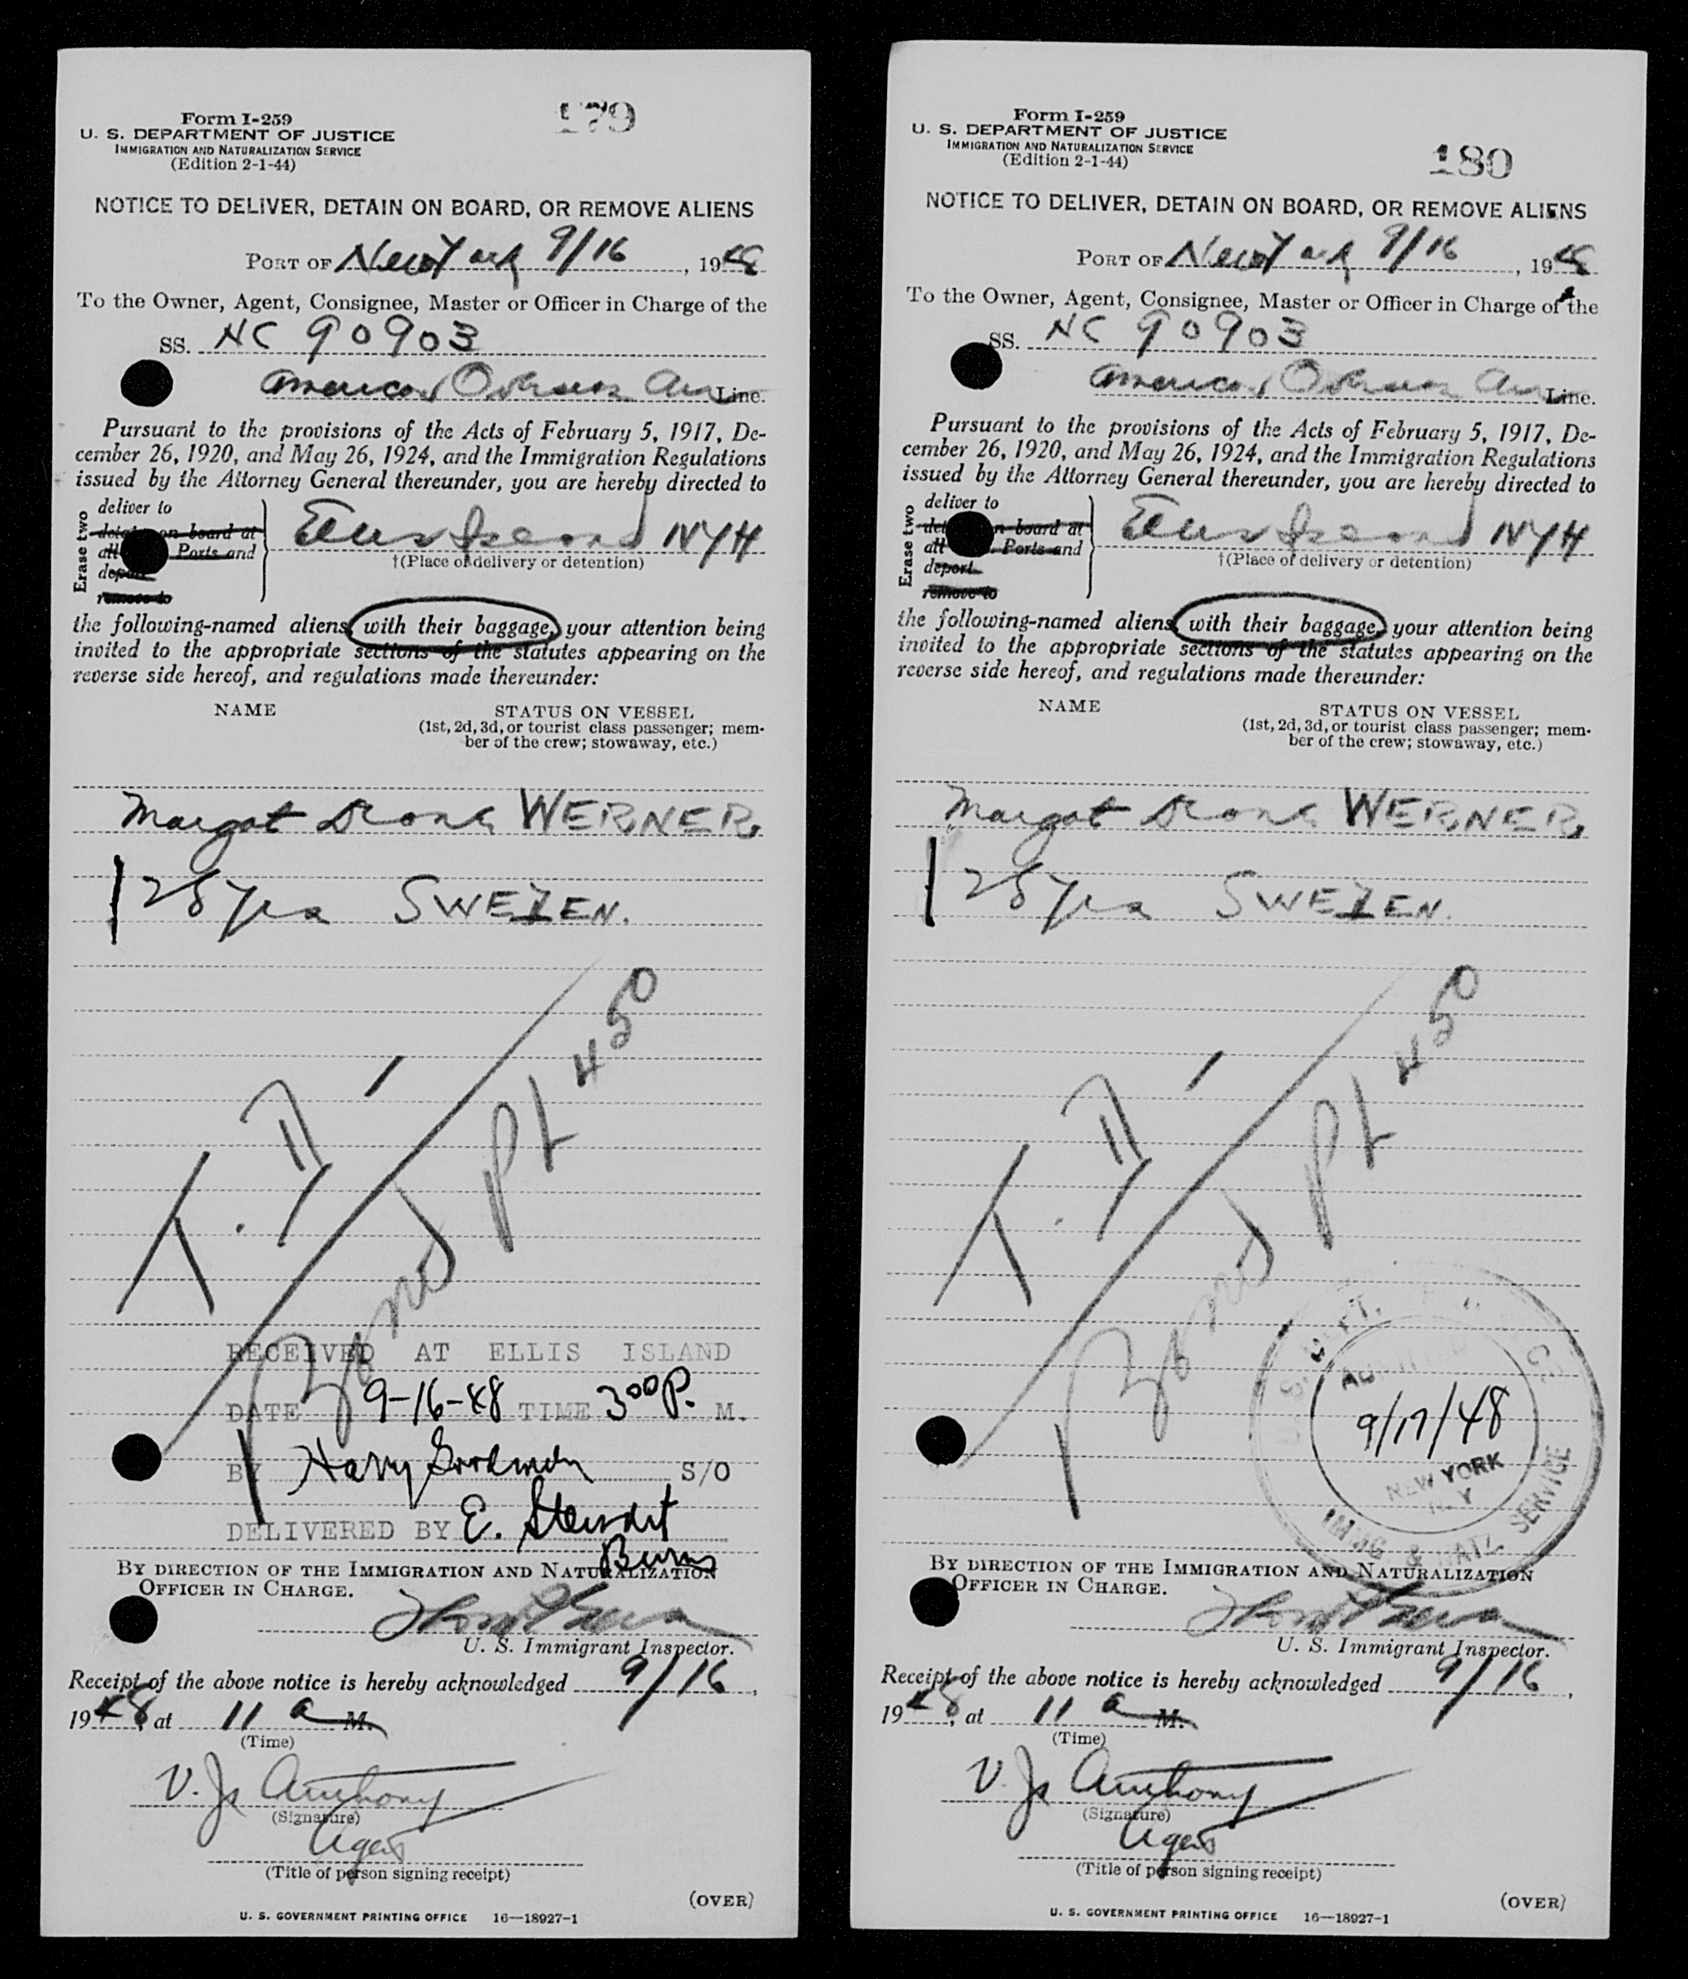 Form I-259
U. S. DEPARTMENT OF JUSTICE
IMMIGRATION AND NATURALIZATION SERVICE
(Edition 2-1-44)
179
NOTICE TO DELIVER, DETAIN ON BOARD, OR REMOVE ALIENS
PORT OF New York 9/16, 1948
To the Owner, Agent, Consignee, Master or Officer in Charge of the
SS. NC 90903
American Overseas Air Line.
Pursuant to the provisions of the Acts of February 5, 1917, De-
cember 26, 1920, and May 26, 1924, and the Immigration Regulations
issued by the Attorney General thereunder, you are hereby directed to
Erase two
deliver to
on board at
all Ports and
deport
remove to
Ellis Island NYH
†(Place of delivery or detention)
the following-named aliens, with their baggage, your attention being
invited to the appropriate sections of the statutes appearing on the
reverse side hereof, and regulations made thereunder:
NAME
STATUS ON VESSEL
(1st, 2d, 3d, or tourist class passenger; mem-
ber of the crew; stowaway, etc.)
Margot WERNER
28 yrs SWEDEN.
Bond Pt 4 50
RECEIVED AT ELLIS ISLAND
DATE 9-16-48 TIME 3 00 P. M.
BY Harry Goodman S/O
DELIVERED BY E. Stewart
Burns
BY DIRECTION OF THE IMMIGRATION AND NATURALIZATION
OFFICER IN CHARGE.
U. S. Immigrant Inspector.
Receipt of the above notice is hereby acknowledged 9/16,
1948, at 11 a M.
(Time)
V. Js Anthony
(Signature)
Agent
(Title of person signing receipt)
(OVER)
U. S. GOVERNMENT PRINTING OFFICE 16—18927-1
Form I-259
U. S. DEPARTMENT OF JUSTICE
IMMIGRATION AND NATURALIZATION SERVICE
(Edition 2-1-44)
180
NOTICE TO DELIVER, DETAIN ON BOARD, OR REMOVE ALIENS
PORT OF New York 9/16, 1948
To the Owner, Agent, Consignee, Master or Officer in Charge of the
SS. NC 90903
American Overseas Air Line.
Pursuant to the provisions of the Acts of February 5, 1917, De-
cember 26, 1920, and May 26, 1924, and the Immigration Regulations
issued by the Attorney General thereunder, you are hereby directed to
Erase two
deliver to
on board at
all Ports and
deport
remove to
Ellis Island NYH
†(Place of delivery or detention)
the following-named aliens, with their baggage, your attention being
invited to the appropriate sections of the statutes appearing on the
reverse side hereof, and regulations made thereunder:
NAME
STATUS ON VESSEL
(1st, 2d, 3d, or tourist class passenger; mem-
ber of the crew; stowaway, etc.)
Margot WERNER
28 yrs SWEDEN.
Bond Pt 4 50
9/17/48
NEW YORK
N. Y
IMMG & NATZ SERVICE
BY DIRECTION OF THE IMMIGRATION AND NATURALIZATION
OFFICER IN CHARGE.
U. S. Immigrant Inspector.
Receipt of the above notice is hereby acknowledged 9/16,
1948, at 11 a M.
(Time)
V. Js Anthony
(Signature)
Agent
(Title of person signing receipt)
(OVER)
U. S. GOVERNMENT PRINTING OFFICE 16—18927-1